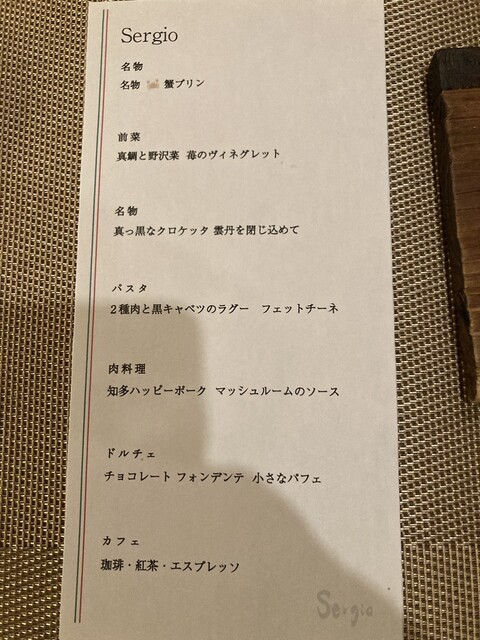 Sergio
名物
名物 蟹プリン
前菜
真鯛と野沢菜 苺のヴィネグレット
名物
真っ黒なクロケッタ 雲丹を閉じ込めて
パスタ
２種肉と黒キャベツのラグー フェットチーネ
肉料理
知多ハッピーポーク マッシュルームのソース
ドルチェ
チョコレート フォンデンテ 小さなパフェ
カフェ
珈琲・紅茶・エスプレッソ
Sergio